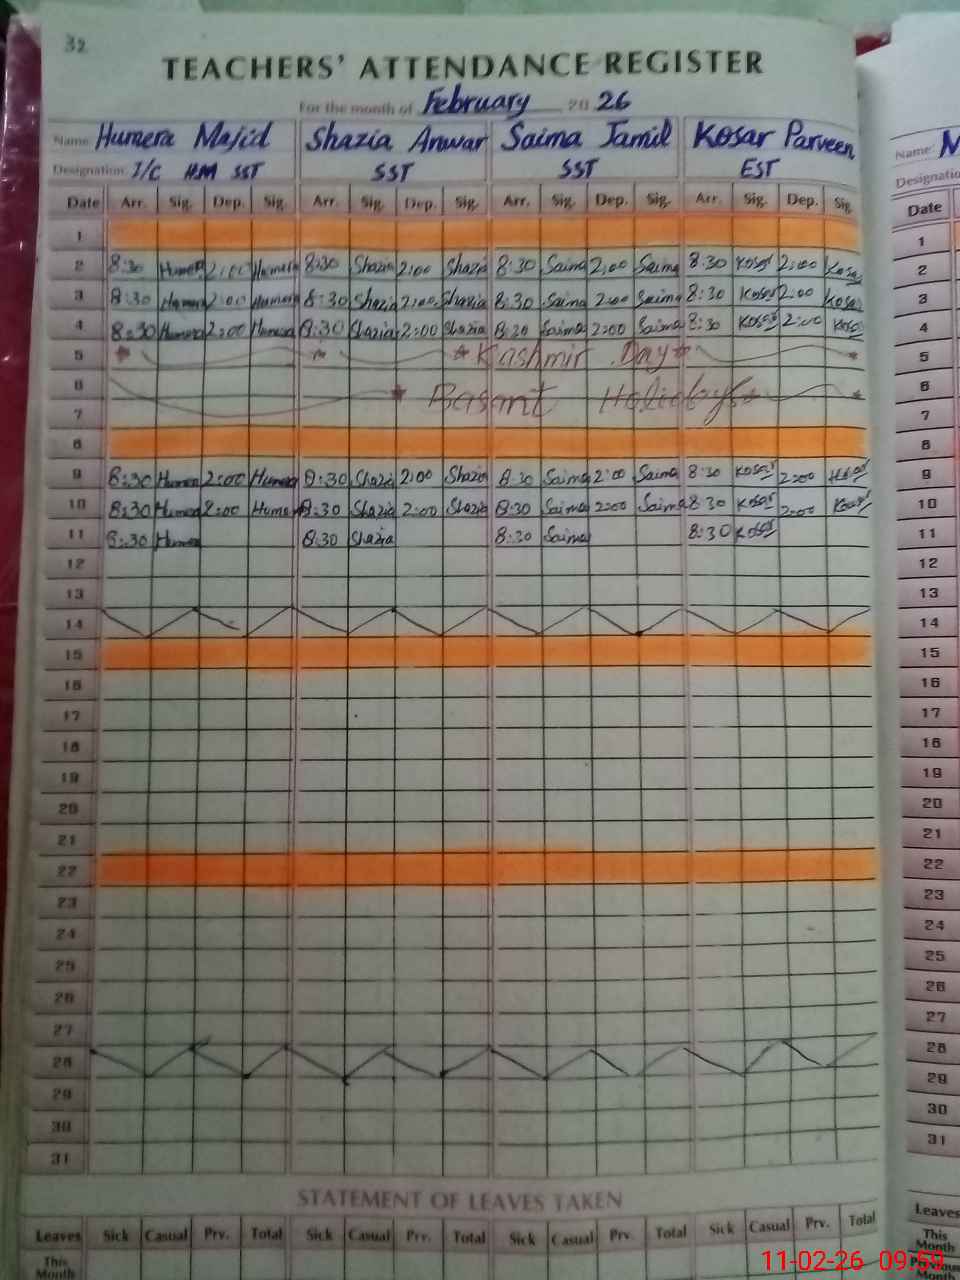 32
TEACHERS' ATTENDANCE REGISTER
For the month of February 20 26
Name: Humera Majid Shazia Anwar Saima Jamil Kosar Parveen
Designation: I/C HM SST SST SST EST
Date Arr. Sig. Dep. Sig. Arr. Sig. Dep. Sig. Arr. Sig. Dep. Sig. Arr. Sig. Dep. Sig.
1
2 8:30 Humera 2:00 Humera 8:30 Shazia 2:00 Shazia 8:30 Saima 2:00 Saima 8:30 Kosar 2:00 Kosar
3 8:30 Humera 2:00 Humera 8:30 Shazia 2:00 Shazia 8:30 Saima 2:00 Saima 8:30 Kosar 2:00 Kosar
4 8:30 Humera 2:00 Humera 8:30 Shazia 2:00 Shazia 8:30 Saima 2:00 Saima 8:30 Kosar 2:00 Kosar
5 Kashmir Day
6 Basant Holidays
7
8
9 8:30 Humera 2:00 Humera 8:30 Shazia 2:00 Shazia 8:30 Saima 2:00 Saima 8:30 Kosar 2:00
10 8:30 Humera 2:00 Humera 8:30 Shazia 2:00 Shazia 8:30 Saima 2:00 Saima 8:30 Kosar 2:00 Kosar
11 8:30 Humera 8:30 Shazia 8:30 Saima 8:30 Kosar
12
13
14
15
16
17
18
19
20
21
22
23
24
25
26
27
28
29
30
31
STATEMENT OF LEAVES TAKEN
Leaves Sick Casual Prv. Total Sick Casual Prv. Total Sick Casual Prv. Total Sick Casual Prv. Total
This Month
Name: M
Designatio
Date
1
2
3
4
5
6
7
8
9
10
11
12
13
14
15
16
17
18
19
20
21
22
23
24
25
26
27
28
29
30
31
Leaves
This Month
11-02-26 09:59